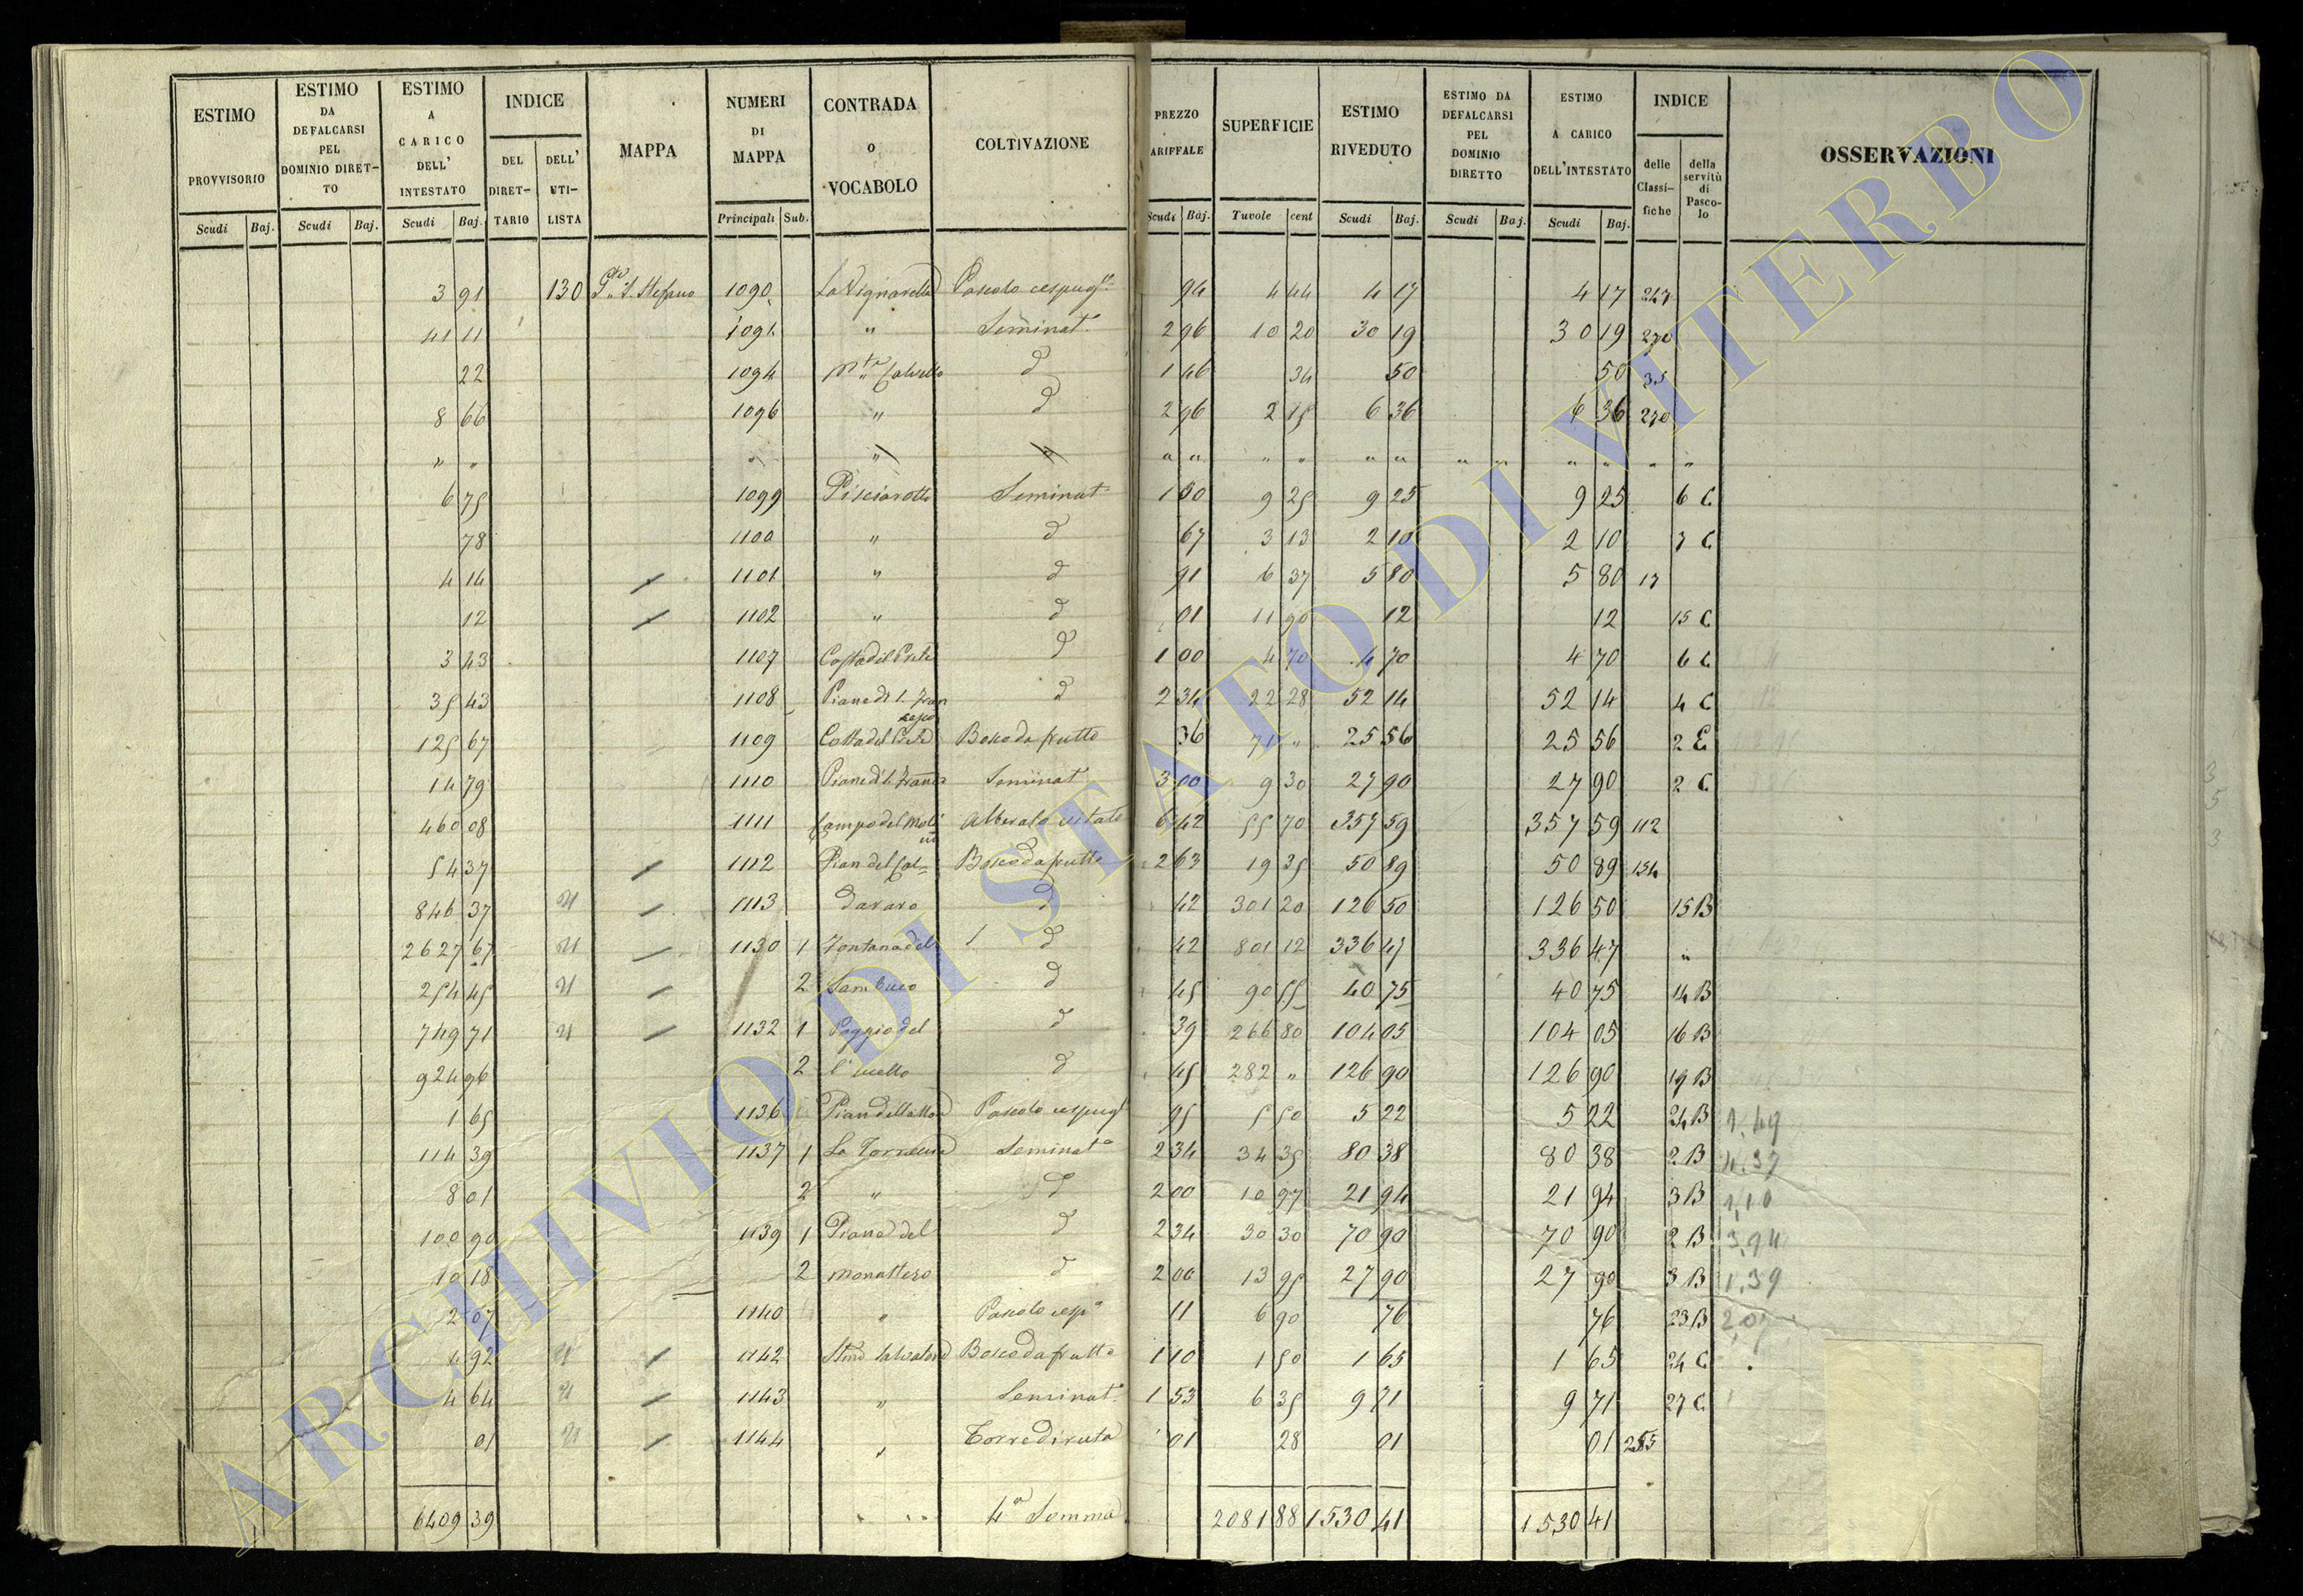 ESTIMO PROVVISORIO Scudi Baj. ESTIMO DA DEFALCARSI PEL DOMINIO DIRETTO Scudi Baj. ESTIMO A CARICO DELL' INTESTATO Scudi Baj. INDICE DEL DIRETTARIO DELL' UTILISTA MAPPA NUMERI DI MAPPA Principali Sub. CONTRADA o VOCABOLO COLTIVAZIONE PREZZO ARIFFALE Scudi Baj. SUPERFICIE Tuvole cent ESTIMO RIVEDUTO Scudi Baj. ESTIMO DA DEFALCARSI PEL DOMINIO DIRETTO Scudi Baj. ESTIMO A CARICO DELL'INTESTATO Scudi Baj. INDICE delle Classifiche della servitù di Pascolo OSSERVAZIONI
3 91 130 1090 La Vignarella Pascolo cespug 94 4 44 4 17 4 17 247
41 11 1091 " Seminat 2 96 10 20 30 19 30 19 270
22 1094 d 1 46 34 50 50 35
8 66 1096 " d 2 96 2 15 6 36 6 36 270
" " " " " " " " " " " " " " " " "
6 75 1099 Pisciarotto Seminat 1 00 9 25 9 25 9 25 6 C
78 1100 " d 67 3 13 2 10 2 10 7 C
4 14 1101 " d 91 6 37 5 80 5 80 17
12 1102 " d 01 11 90 12 12 15 C
3 43 1107 Costa del Prete d 1 00 4 70 4 70 4 70 6 C
35 43 1108 Piane di S. Francesco d 2 34 22 28 52 14 52 14 4 C
125 67 1109 Costa del Prete Bosco da frutto 36 71 " 25 56 25 56 2 E
14 79 1110 Piane di S. Seminat 3 00 9 30 27 90 27 90 2 C
460 08 1111 Campo del Molino Alberato vitato 6 42 55 70 357 59 357 59 112
54 37 1112 Pian del Bosco da frutto 2 63 19 35 50 89 50 89 134
846 37 1113 d 42 301 20 126 50 126 50 15 B
2627 67 1130 1 Fontana del d 42 801 12 336 47 336 47 "
254 45 2 Sambuco d 45 90 55 40 75 40 75 14 B
749 71 1132 1 Poggio del d 39 266 80 104 05 104 05 16 B
924 96 2 d 45 282 " 126 90 126 90 19 B
1 65 1136 Pascolo cespug 95 5 50 5 22 5 22 24 B 1,49
114 39 1137 1 Seminat 2 34 34 35 80 38 80 38 2 B 4,37
8 01 2 " d 2 00 10 97 21 94 21 94 3 B 1,10
100 90 1139 1 Piana del d 2 34 30 30 70 90 70 90 2 B 3,94
10 18 2 monastero d 2 00 13 95 27 90 27 90 3 B 1,39
2 07 1140 " Pascolo cesp 11 6 90 76 76 23 B 2,07
4 92 1142 Bosco da frutto 1 10 1 50 1 65 1 65 24 C
4 64 1143 " Seminat 1 53 6 35 9 71 9 71 27 C
01 1144 " Torre diruta 01 28 01 01 285
6409 39 4a Somma 2081 88 1530 41 1530 41
ARCHIVIO DI STATO DI VITERBO